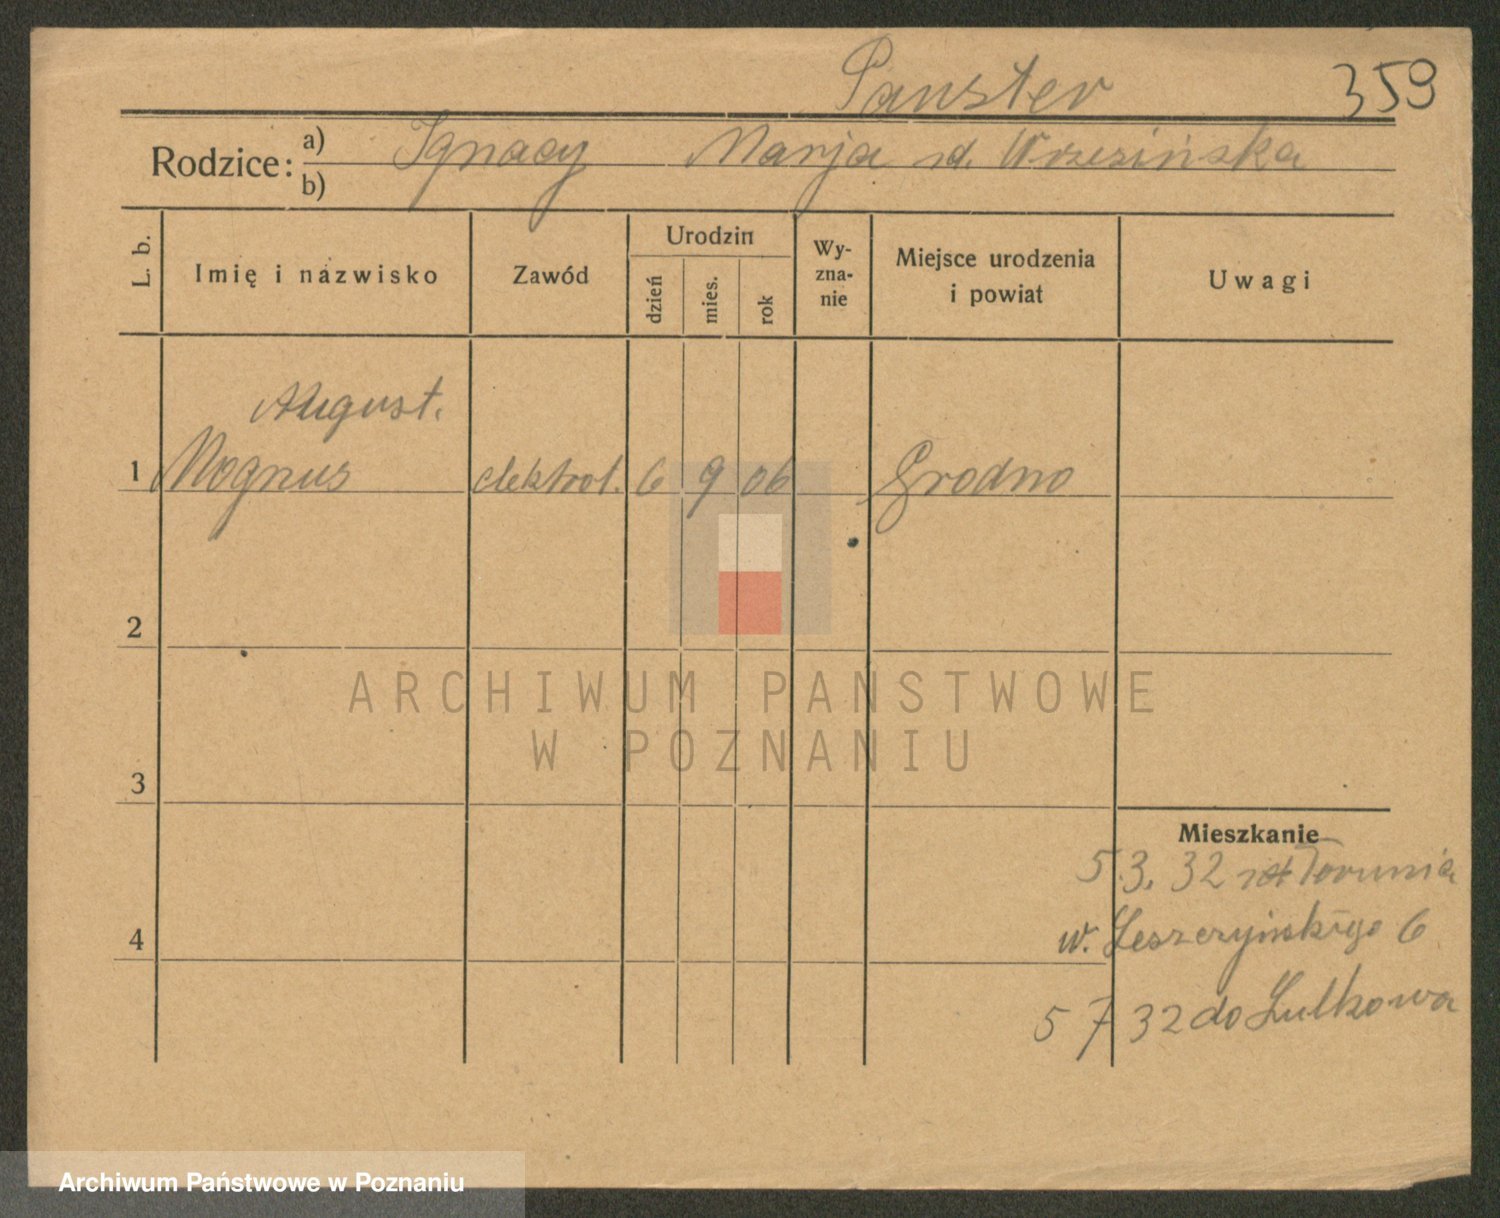 Panster 359
Rodzice: a) Ignacy Marja rd. Wrzesińska
b)
L. b. Imię i nazwisko Zawód Urodzin dzień mies. rok Wy-zna-nie Miejsce urodzenia i powiat Uwagi
August.
1 Magnus elektrot. 6 9 06 Grodno
2
ARCHIWUM PAŃSTWOWE
W POZNANIU
3
Mieszkanie
5.3.32 Torunia
w. Leszczyńskiego 6
4
5 7 32 do Lulkowa
Archiwum Państwowe w Poznaniu